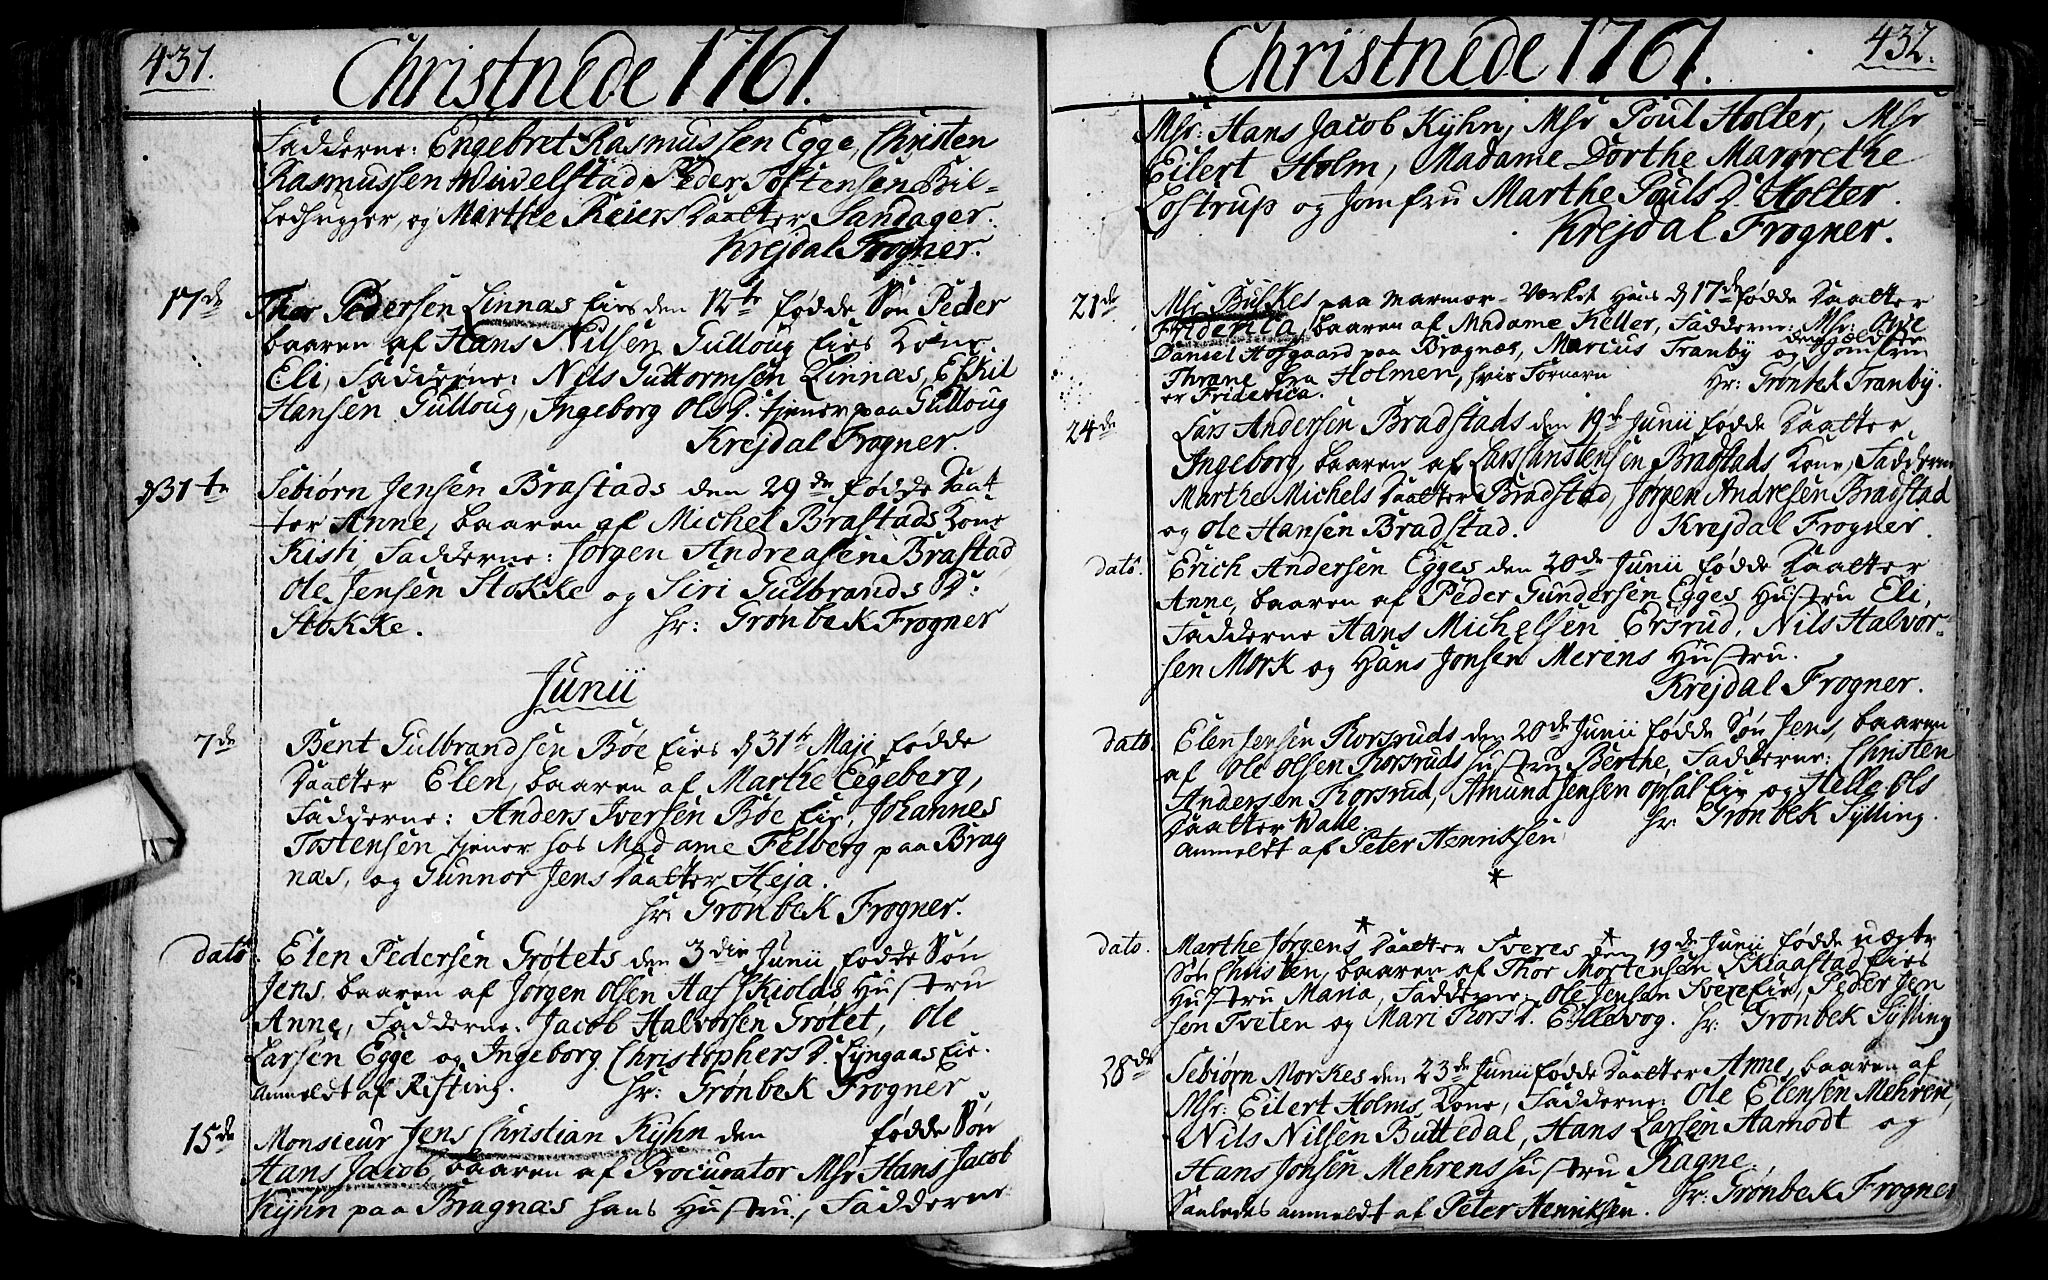 431.
Christnede 1761.
Fadderne: Engebret Rasmussen Egge, Christen
Rasmussen Wivelstad, Peder Tostensen Bil-
ledhugger, og Marthe Reiers Daatter Sandager.
Krejdal Frogner.
17de Thor Pedersen Linnæs Eies den 12te fødde Søn Peder
baaren af Hans Nilsen Gulloug Eies Kone
Eli, Fadderne: Nils Guttormsen Linnæs, Eskil
Hansen Gulloug, Ingeborg Ols D. tjener paa Gulloug
Krejdal Frogner.
d 31te Sebiørn Jensen Brastads den 29de fødde Daat
ter Anne, baaren af Michel Brastads Kone
Kisti, Fadderne: Jørgen Andreasen Brastad
Ole Jensen Stokke og Siri Gulbrands D:
Stokke. Hr: Grønbek Frogner
Junii
7de Bent Gulbrandsen Bøe Eies d 31te Maji fødde
Daatter Elen, baaren af Marthe Eegeberg,
Fadderne: Anders Iversen Bøe Eie, Johannes
Tostensen tjener hos Madame Felberg paa Brag
næs, og Gunnor Jens Daatter Heja.
Hr: Grønbek Frogner.
dato. Elen Pedersen Grøtets den 3die Junii fødde Søn
Jens, baaren af Jørgen Olsen Aas Skiolds Hustru
Anne, Fadderne: Jacob Halvorsen Grøtet, Ole
Larsen Egge og Ingeborg Christophers D. Lyngaas Eie.
Anmeldt af Risting. Hr: Grønbek Frogner
15de Monsieur Jens Christian Kyhn den fødde Søn
Hans Jacob baaren af Procurator Msr Hans Jacob
Kyhn paa Bragnæs hans Hustru, Fadderne
432.
Christnede 1761.
Msr: Hans Jacob Kyhn, Msr Poul Holter, Msr
Eilert Holm, Madame Dorthe Margrethe
Lostrup og Jomfru Marthe Pouls D. Holter.
Krejdal Frogner.
21de Msr Buskes paa Marmor-Værket Hans d 17de fødde Daatter
Friderica, baaren af Madame Keller, Fadderne: Msr:
Daniel Hofgaard paa Bragnæs, Marcus Tranby og den ældste Jomfru
Thrane fra Holmen, hvis Fornavn Hr: Grønbek Tranby.
er Friderica.
24de Lars Andersen Bradstads den 19de Junii fødde Daatter
Ingeborg, baaren af Lars Christensen Bradstads Kone, Fadderne
Marthe Michels Daatter Bradstad, Jørgen Andresen Bradstad
og Ole Hansen Bradstad. Krejdal Frogner.
dato. Erich Andersen Egges den 20de Junii fødde Daatter
Anne, baaren af Peder Gundersen Egges Hustru Eli,
Fadderne Hans Michelsen Ersrud, Nils Halvor-
sen Mork og Hans Jonsen Merens Hustru.
Krejdal Frogner.
dato. Elen Jensen Korsruds den 20de Junii fødde Søn Jens, baaren
af Ole Olsen Korsruds Hustru Berthe, Fadderne: Christen
Andersen Korsrud, Amund Jensen Opsal Eie og Helle Ols
Daatter Walle Hr Grønbek Sylling.
Anmeldt af Peter Henriksen
*
dato. Marthe Jørgens * Daatter Sveres * den 19de Junii fødde uægte
Søn Christen, baaren af Thor Mortensen Skiaastad Eies
Hustru Maria, Fadderne: Ole Jensen Svere Eie, Peder Jen
sen Tveten og Mari Tors D. Ellevog. Hr: Grønbek Sylling
28de Sebiørn Morkes den 23de Junii fødde Daatter Anne, baaren af
Msr: Eilert Holms Kone, Fadderne: Ole Elensen Mehren,
Nils Nilsen Buttedal, Hans Larsen Aamodt og
Hans Jonsen Mehrens Hustru Ragne.
Hr: Grønbek Frogner
Saaledes anmeldt af Peter Henriksen.